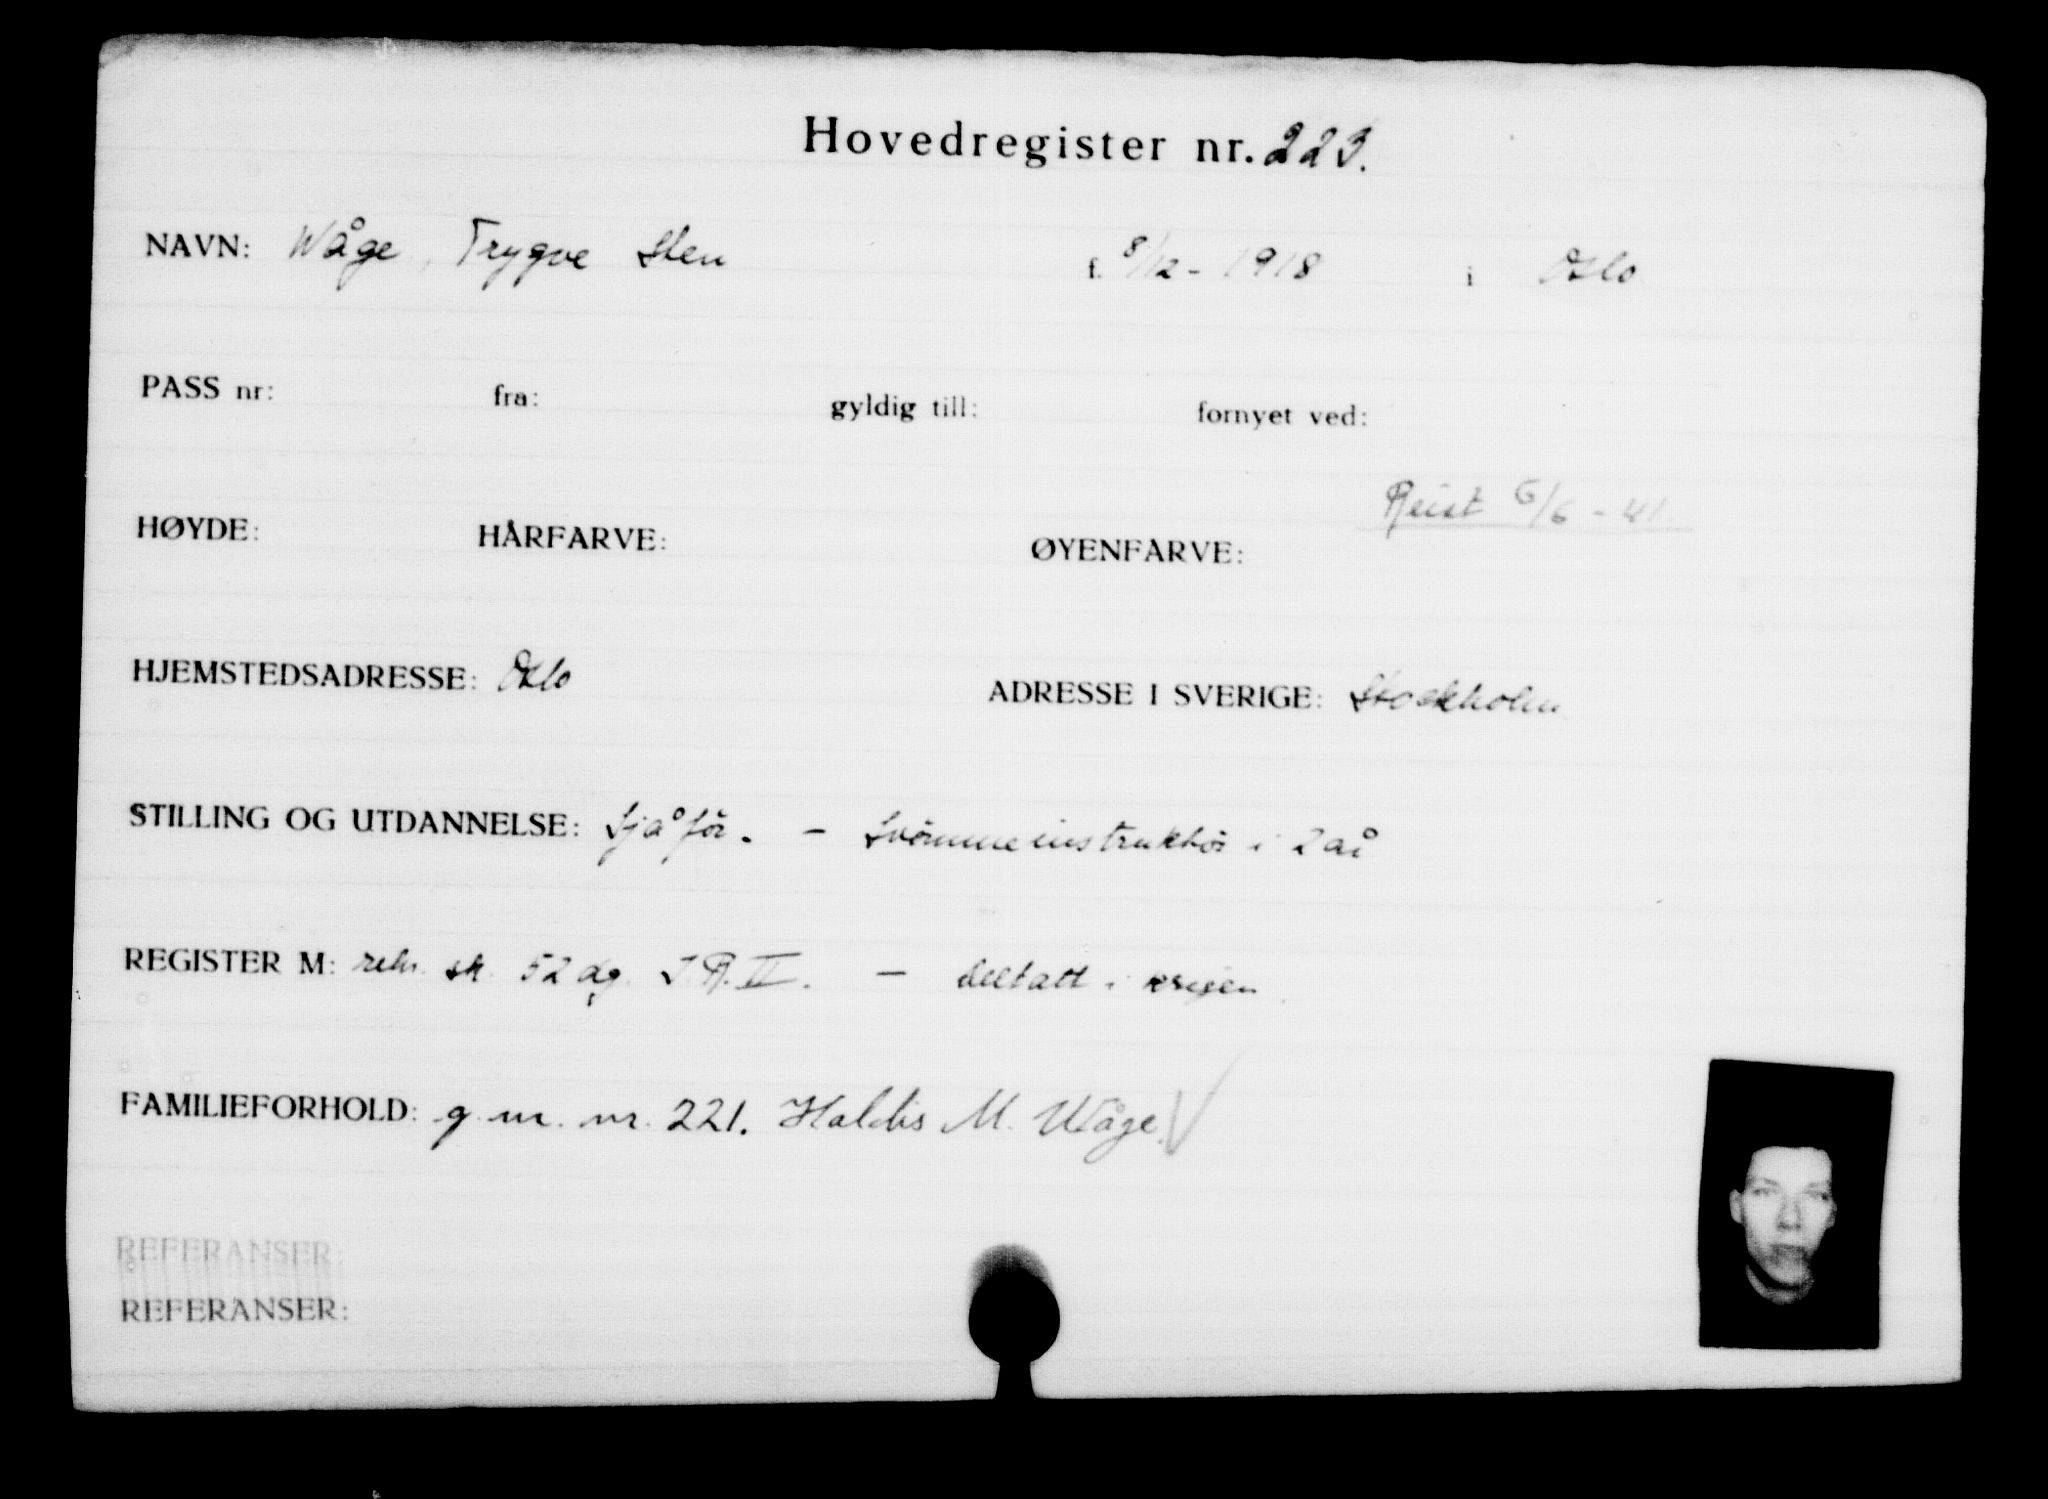 Hovedregister nr. 223.
NAVN: Wåge, Trygve Sten f. 8/12 - 1918 i Oslo
PASS nr: fra: gyldig till: fornyet ved:
Reist 6/6 - 41
HØYDE: HÅRFARVE: ØYENFARVE:
HJEMSTEDSADRESSE: Oslo ADRESSE I SVERIGE: Stockholm
STILLING OG UTDANNELSE: Sjåför. - Svömmeinstruktör i 2 år
REGISTER M: rekr. sk. 52 dg. I.R. II. - deltatt i krigen
FAMILIEFORHOLD: g. m. nr. 221. Haldis M. Wåge.
REFERANSER:
REFERANSER: